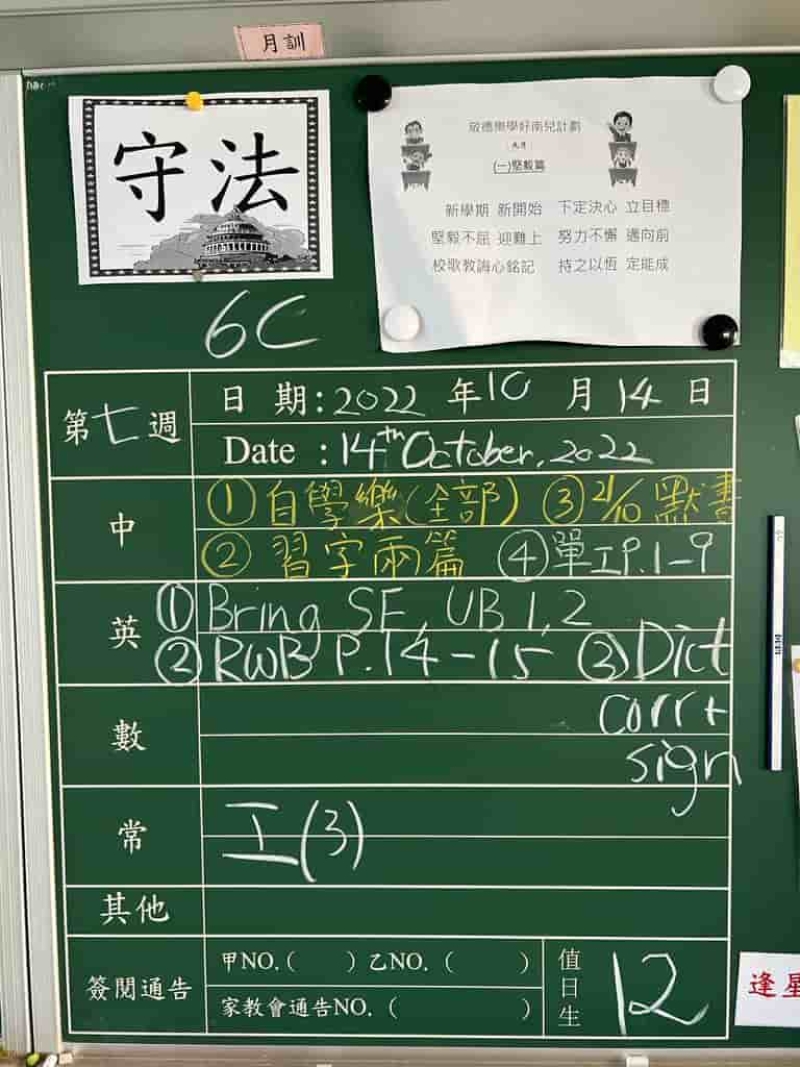 月訓
守法
啟德樂學好南兒計劃
九月
(一)堅毅篇
新學期 新開始 下定決心 立目標
堅毅不屈 迎難上 努力不懈 邁向前
校歌教誨心銘記 持之以恆 定能成
6C
第七週
日 期:2022 年10 月 14 日
Date :14th October, 2022
中
①自學樂(全部) ③21/10 默書
②習字兩篇 ④單工P.1-9
英
①Bring SE, UB 1, 2
②RWB P.14-15 ③Dict
corr+
sign
數
常
工(3)
其他
簽閱通告
甲NO.( )乙NO.( )
家教會通告NO.( )
值日生
12
逢星